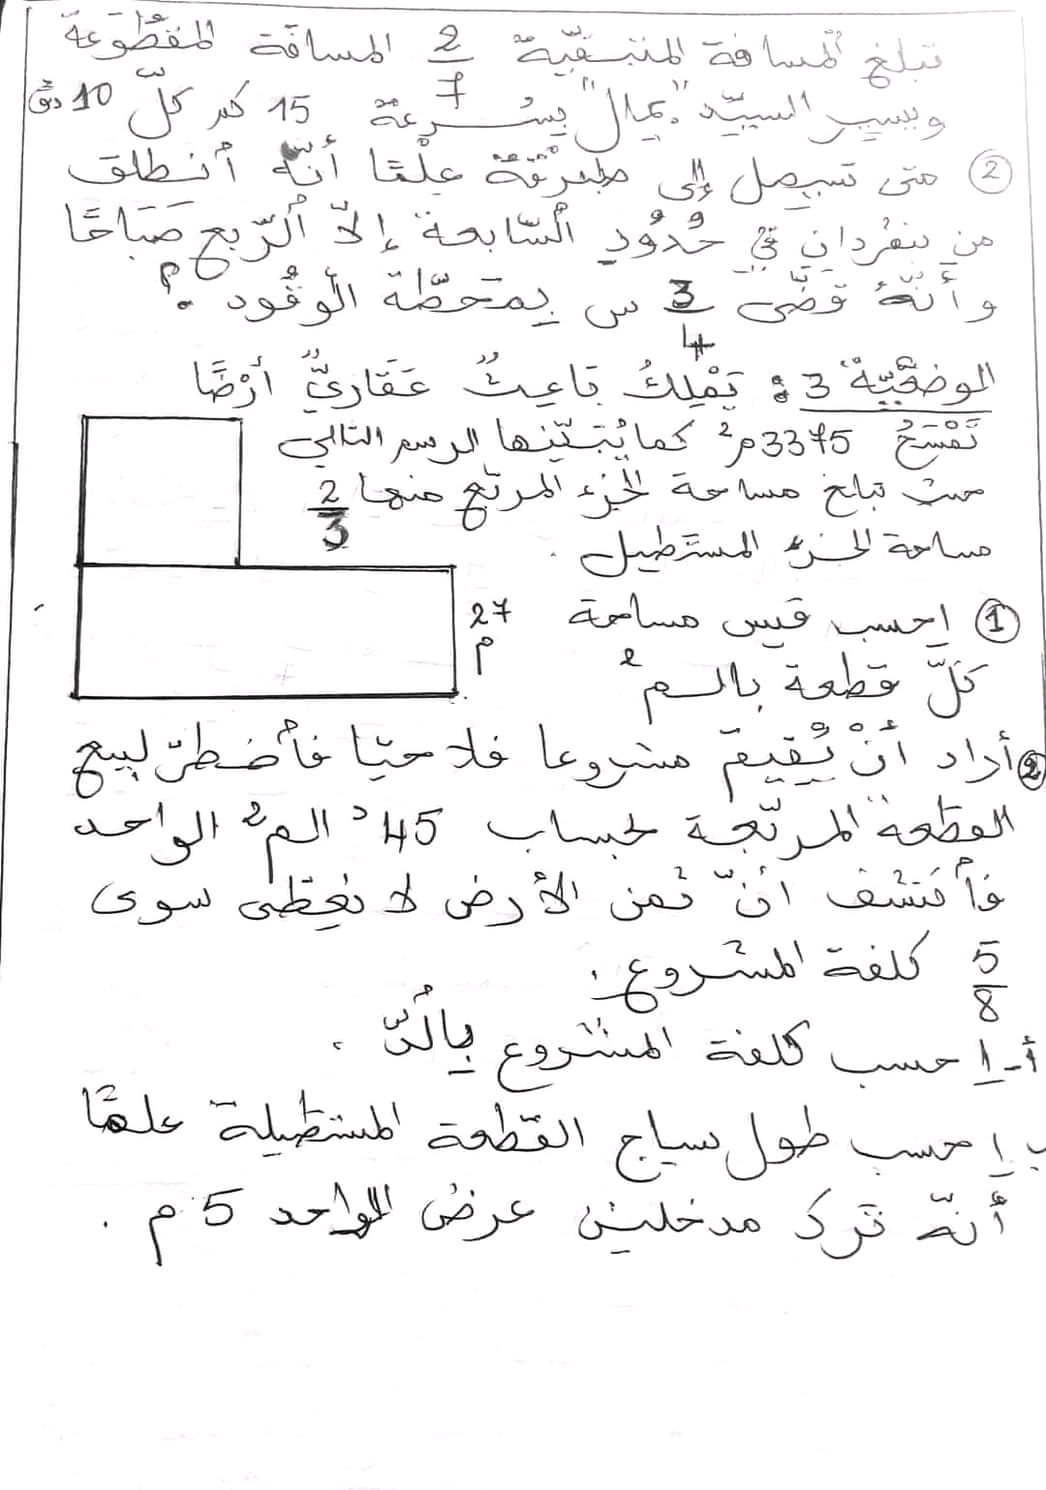 تبلغ المسافة المتبقّية 2/7 المسافة المقطوعة
ويسير السيّد "جمال" بسُرعة 15 كم كلّ 10 دق
② متى سيصل إلى طبرقة علمًا أنّه أنطلق
من بنقردان في حُدُودِ السّابعة إلاّ الرّبع صَبَاحًا
و أنّهُ قضّى 3/4 س بِمحَطّة الوقُود ؟
الوضعيّة 3 : تَمْلِكُ بَاعِثٌ عَقَارِيٌّ أرْضًا
تَمْسَحُ 3375م² كما يُبَيّنها الرسم التالي
حيث تبلغ مساحة الجزء المربّع منها 2/3
مساحة الجزء المستطيل .
27 م
① اِحسب قيس مساحة
كلّ قطعة بالـم²
② أراد أنْ يُقيمَ مشروعا فلاحيّا فأضطرّ لبيع
القطعة المربّعة بحساب 45د الـم² الواحد
فأكتشف أنّ ثمن الأرض لا يغطّى سوى
5/8 كلفة المشروع .
أ- اِحسب كلفة المشروع بِالدّ .
ب اِحسب طول سياج القطعة المستطيلة علمًا
أنّه ترك مدخلين عرضُ الواحد 5 م .